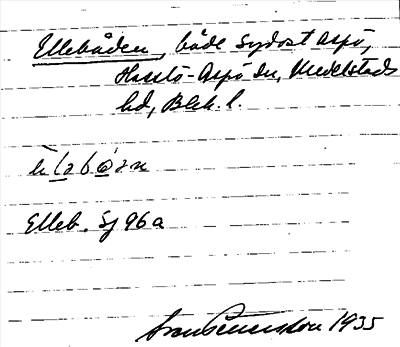 Ellebåden, både sydost Aspö,
Hasslö-Aspö sn, Medelstads
hd, Blek. l.
Elleb. Sj 96a
1935